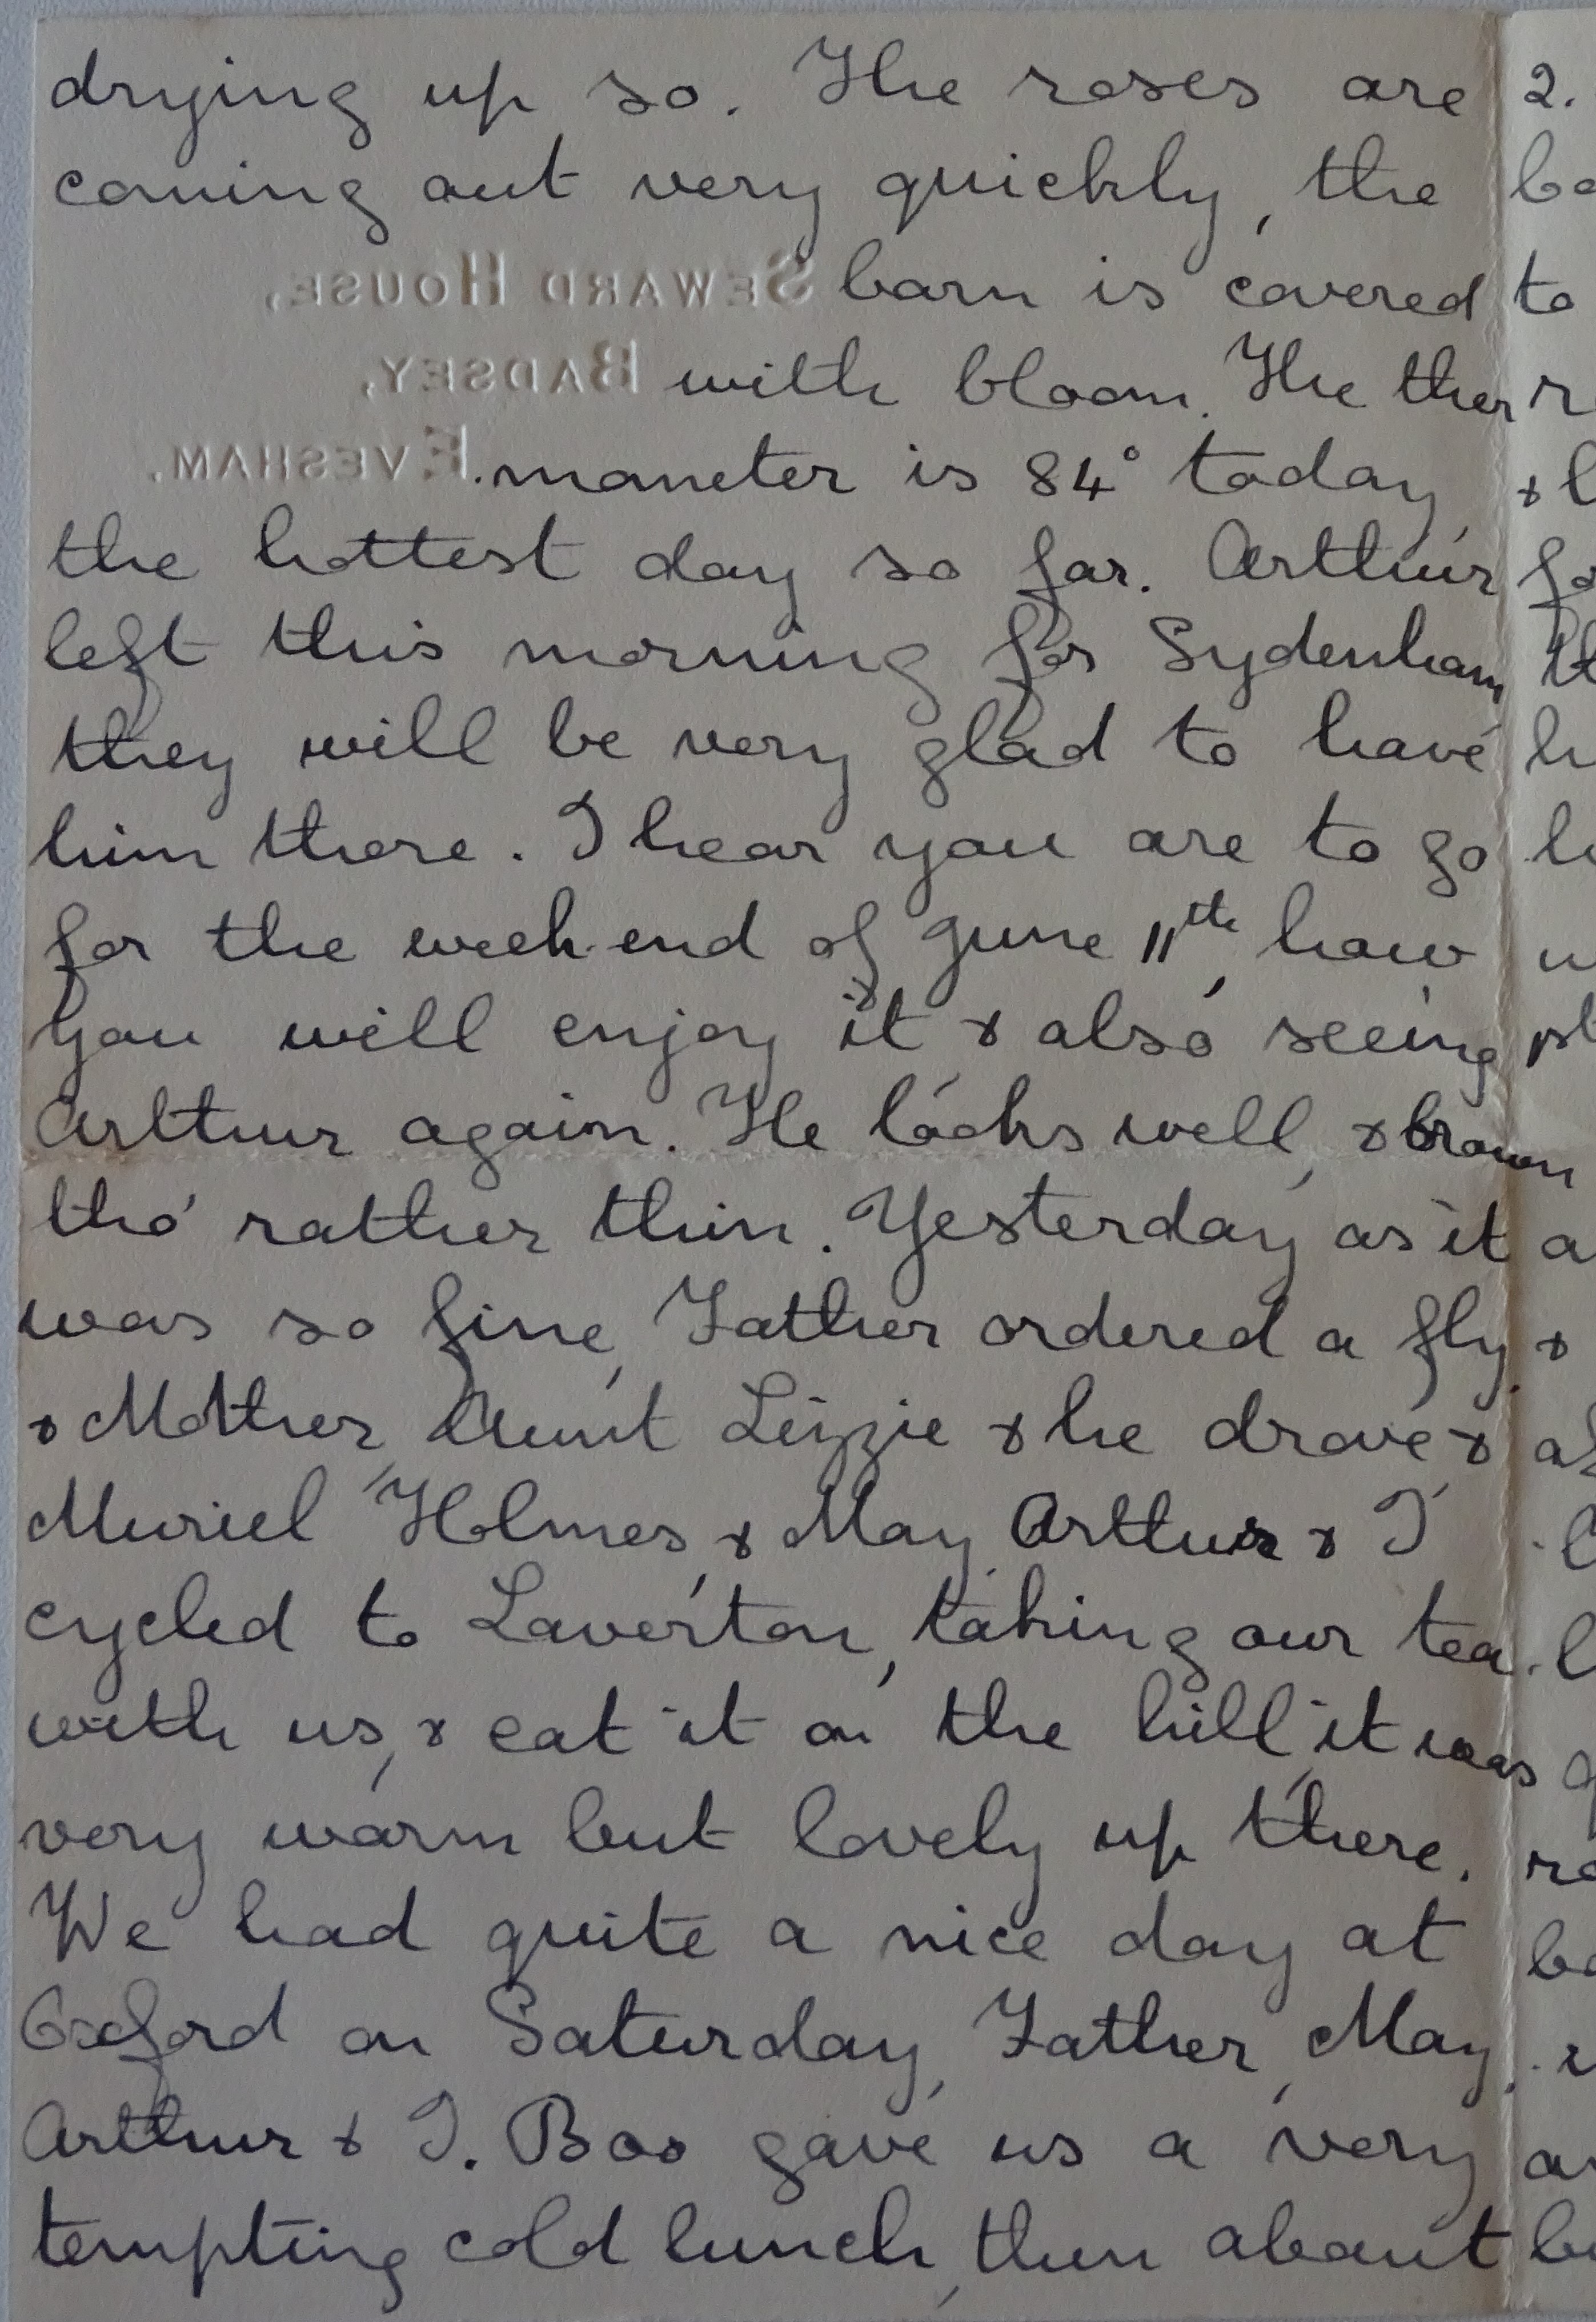 drying up so. The roses are
coming out very quickly, the
SEWARD HOUSE, barn is covered
BADSEY, with bloom. The ther
EVESHAM. mometer is 84° today,
the hottest day so far. Arthur
left this morning for Sydenham,
they will be very glad to have
him there. I hear you are to go
for the week-end of June 11th, how
you will enjoy it & also seeing
Arthur again. He looks well, & brown
tho' rather thin. Yesterday as it
was so fine, Father ordered a fly,
& Mother, Aunt Lizzie & he drove &
Muriel Holmes, & May, Arthur & I
cycled to Laverton, taking our tea
with us, & eat it on the hill, it was
very warm but lovely up there.
We had quite a nice day at
Oxford on Saturday, Father, May,
Arthur & I. Bos gave us a very
tempting cold lunch, then about
2.
to
&